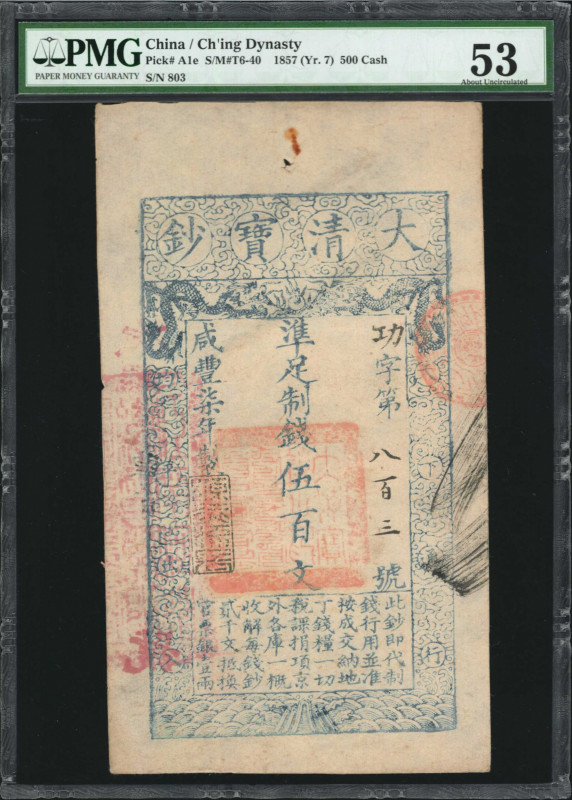 PMG
PAPER MONEY GUARANTY
China / Ch'ing Dynasty
Pick# A1e S/M#T6-40 1857 (Yr. 7) 500 Cash
S/N 803
53
About Uncirculated
大清寶鈔
功字第八百三號
準足制錢伍百文
咸豐柒年製
此鈔即代制
錢行用並准
按成交納地
丁錢糧一切
稅課捐項京
外各庫一概
收解每錢鈔
貳千文抵換
官票銀壹兩
天下通行